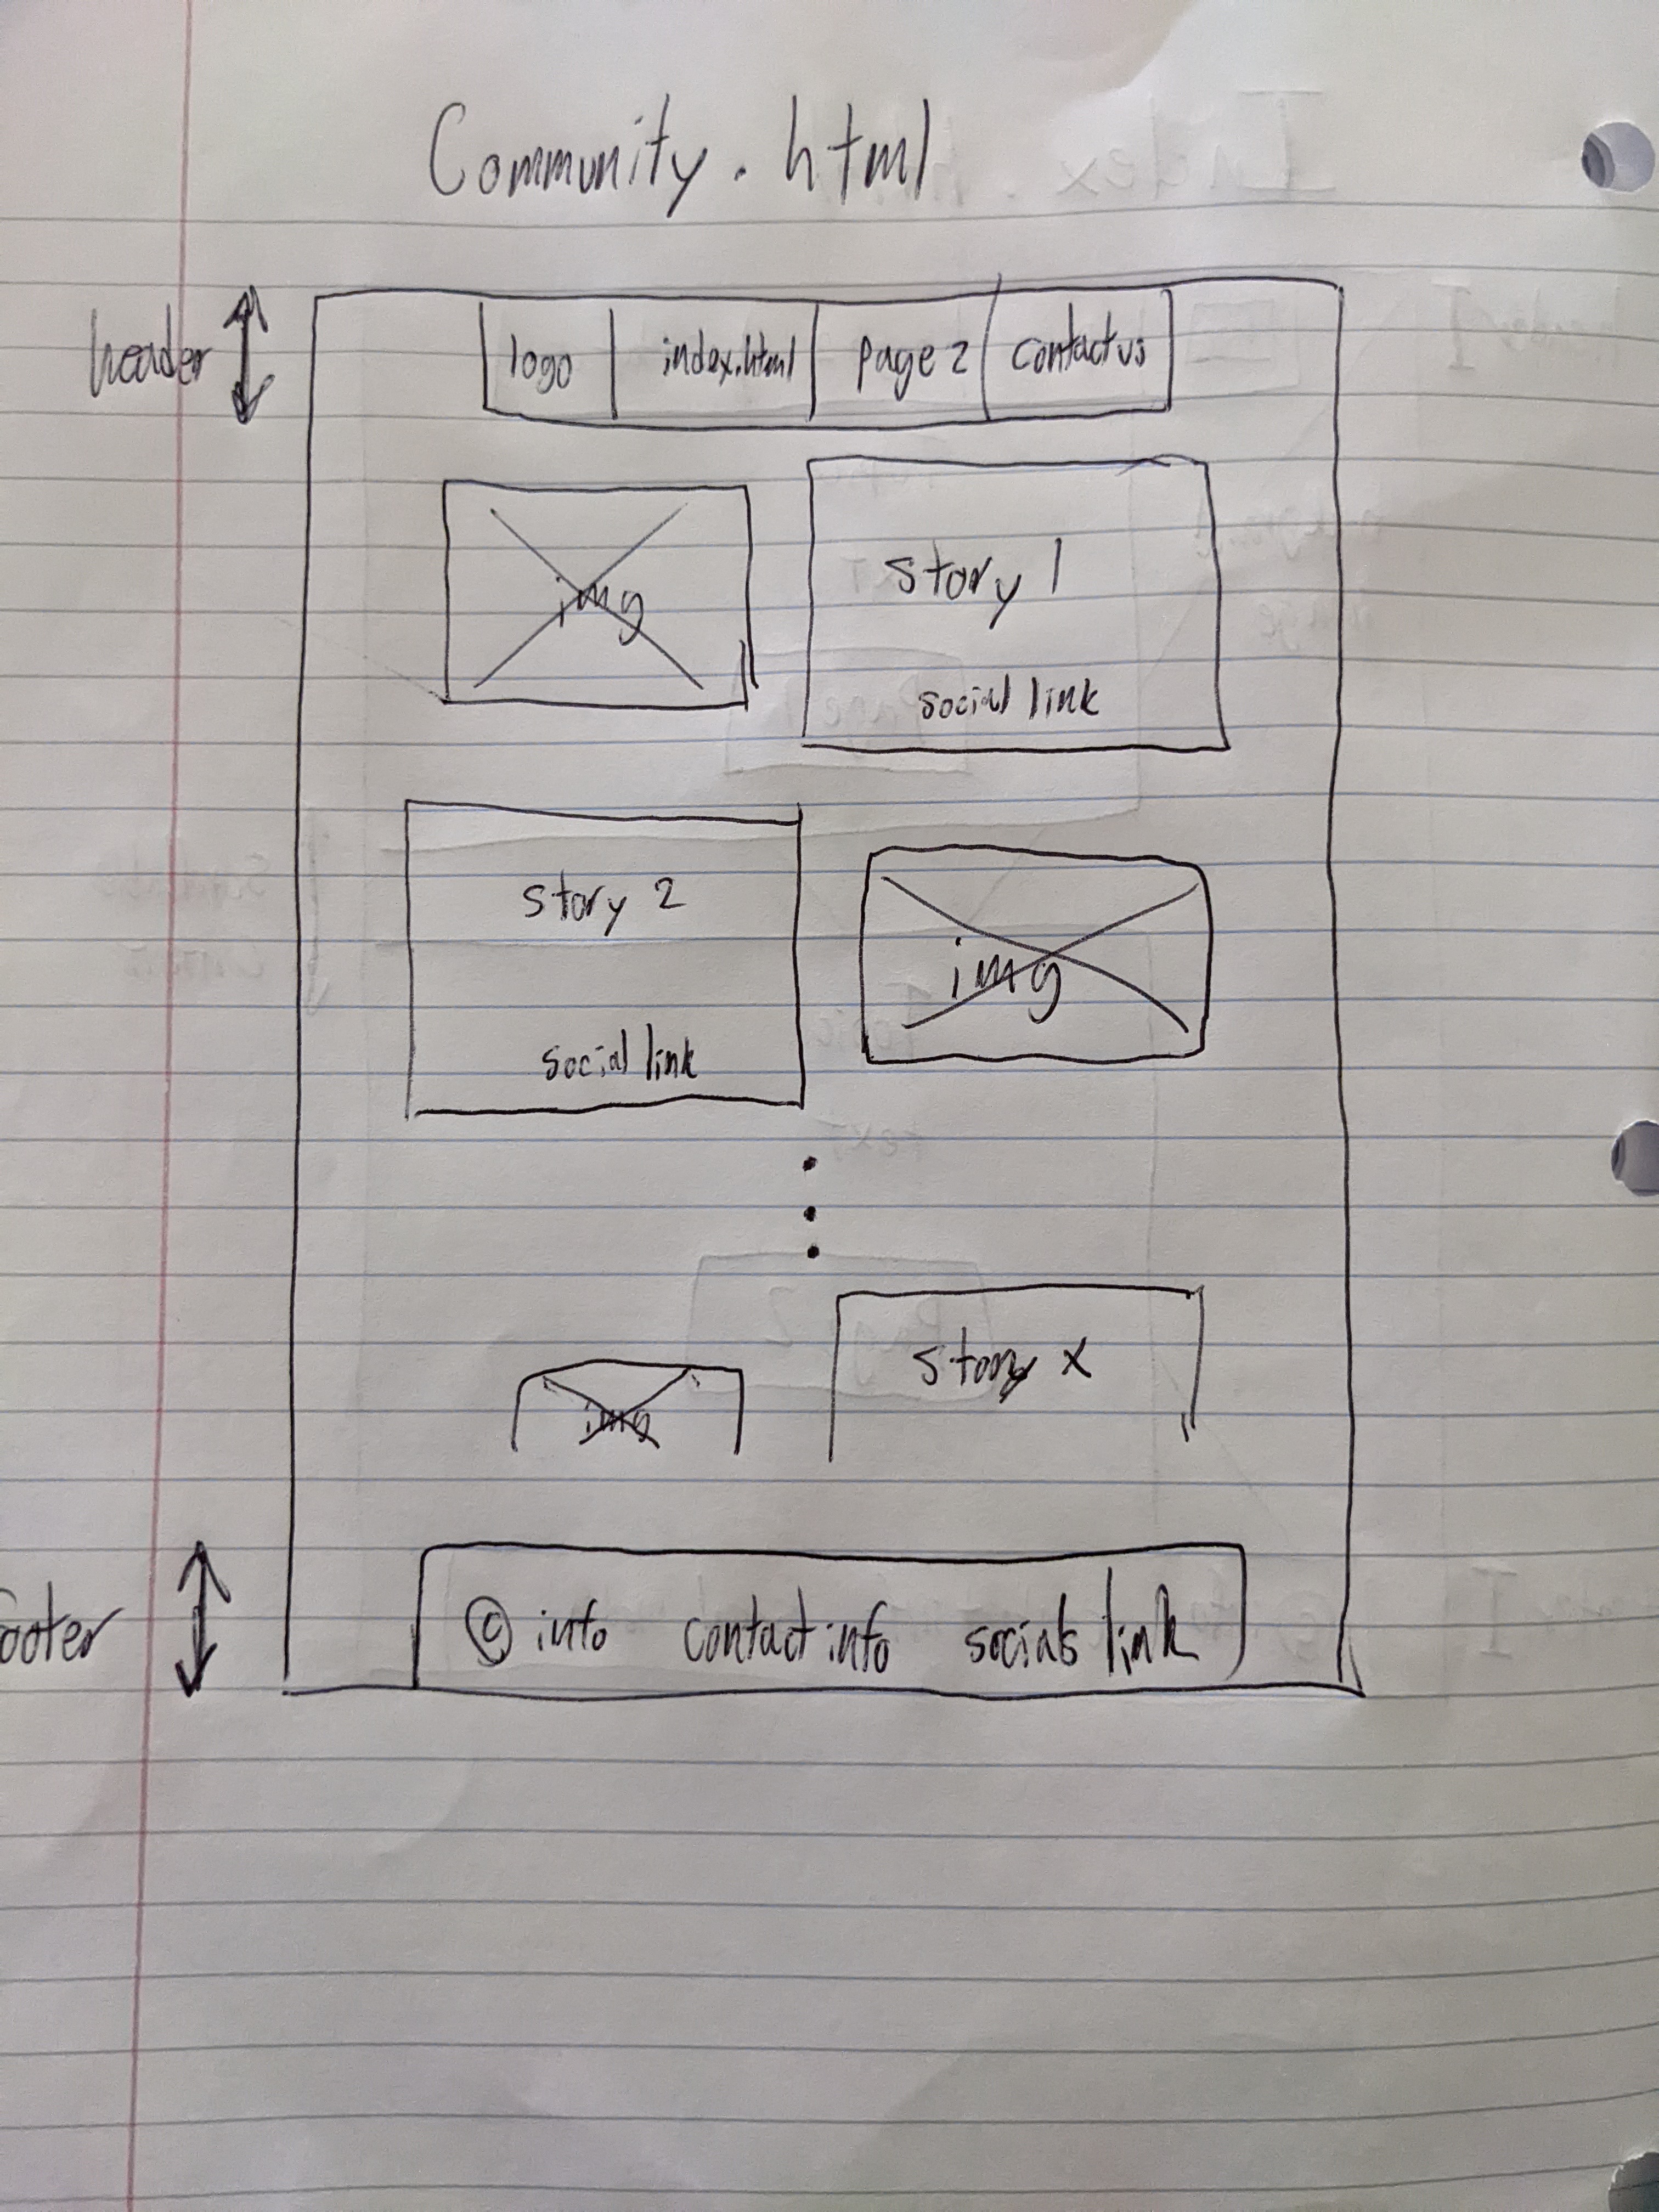 Community.html
header
logo index.html page 2 contact us
img
story 1
social link
story 2
img
social link
story x
img
ooter
© info contact info socials link